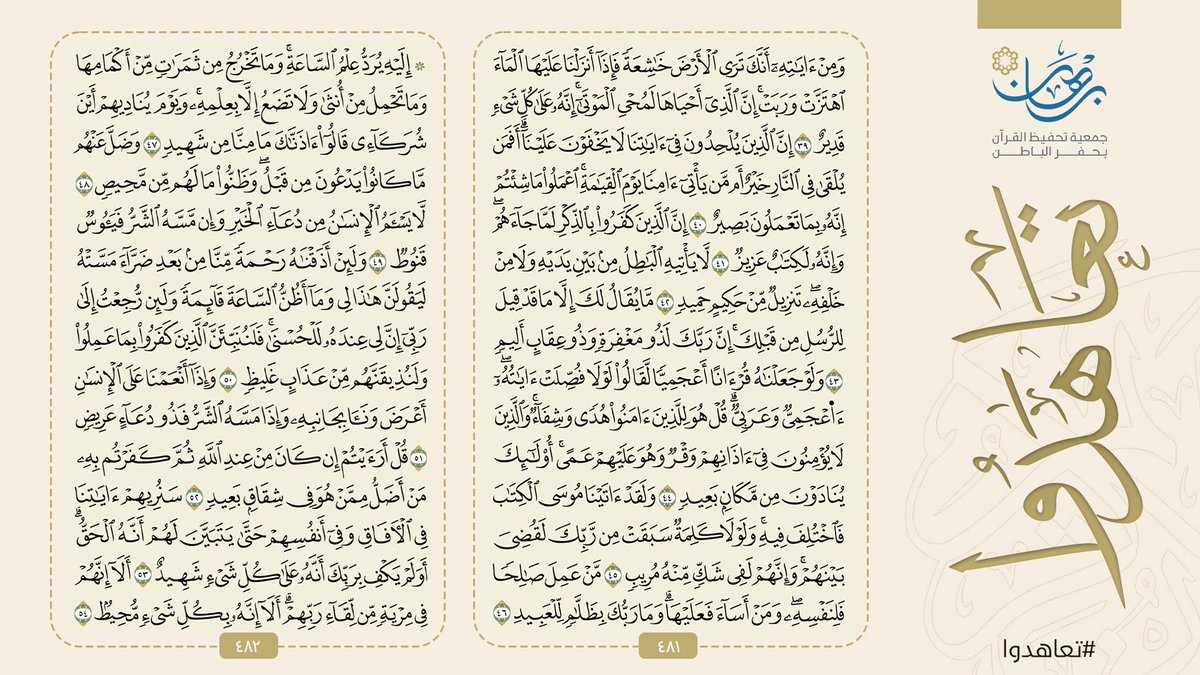 برهان
جمعية تحفيظ القرآن
بحفر الباطن
تعاهدوا
#تعاهدوا
وَمِنْ ءَايَٰتِهِۦٓ أَنَّكَ تَرَى ٱلْأَرْضَ خَٰشِعَةً فَإِذَآ أَنزَلْنَا عَلَيْهَا ٱلْمَآءَ
ٱهْتَزَّتْ وَرَبَتْ ۚ إِنَّ ٱلَّذِىٓ أَحْيَاهَا لَمُحْىِ ٱلْمَوْتَىٰٓ ۚ إِنَّهُۥ عَلَىٰ كُلِّ شَىْءٍ
قَدِيرٌ ٣٩ إِنَّ ٱلَّذِينَ يُلْحِدُونَ فِىٓ ءَايَٰتِنَا لَا يَخْفَوْنَ عَلَيْنَآ ۗ أَفَمَن
يُلْقَىٰ فِى ٱلنَّارِ خَيْرٌ أَم مَّن يَأْتِىٓ ءَامِنًا يَوْمَ ٱلْقِيَٰمَةِ ۚ ٱعْمَلُوا۟ مَا شِئْتُمْ ۖ
إِنَّهُۥ بِمَا تَعْمَلُونَ بَصِيرٌ ٤٠ إِنَّ ٱلَّذِينَ كَفَرُوا۟ بِٱلذِّكْرِ لَمَّا جَآءَهُمْ ۖ
وَإِنَّهُۥ لَكِتَٰبٌ عَزِيزٌ ٤١ لَّا يَأْتِيهِ ٱلْبَٰطِلُ مِنۢ بَيْنِ يَدَيْهِ وَلَا مِنْ
خَلْفِهِۦ ۖ تَنزِيلٌ مِّنْ حَكِيمٍ حَمِيدٍ ٤٢ مَّا يُقَالُ لَكَ إِلَّا مَا قَدْ قِيلَ
لِلرُّسُلِ مِن قَبْلِكَ ۚ إِنَّ رَبَّكَ لَذُو مَغْفِرَةٍ وَذُو عِقَابٍ أَلِيمٍ
٤٣ وَلَوْ جَعَلْنَٰهُ قُرْءَانًا أَعْجَمِيًّا لَّقَالُوا۟ لَوْلَا فُصِّلَتْ ءَايَٰتُهُۥٓ ۖ
ءَا۬عْجَمِىٌّ وَعَرَبِىٌّ ۗ قُلْ هُوَ لِلَّذِينَ ءَامَنُوا۟ هُدًى وَشِفَآءٌ ۖ وَٱلَّذِينَ
لَا يُؤْمِنُونَ فِىٓ ءَاذَانِهِمْ وَقْرٌ وَهُوَ عَلَيْهِمْ عَمًى ۚ أُو۟لَٰٓئِكَ
يُنَادَوْنَ مِن مَّكَانٍۭ بَعِيدٍ ٤٤ وَلَقَدْ ءَاتَيْنَا مُوسَى ٱلْكِتَٰبَ
فَٱخْتُلِفَ فِيهِ ۗ وَلَوْلَا كَلِمَةٌ سَبَقَتْ مِن رَّبِّكَ لَقُضِىَ
بَيْنَهُمْ ۚ وَإِنَّهُمْ لَفِى شَكٍّ مِّنْهُ مُرِيبٍ ٤٥ مَّنْ عَمِلَ صَٰلِحًا
فَلِنَفْسِهِۦ ۖ وَمَنْ أَسَآءَ فَعَلَيْهَا ۗ وَمَا رَبُّكَ بِظَلَّٰمٍ لِّلْعَبِيدِ ٤٦
٤٨١
۞ إِلَيْهِ يُرَدُّ عِلْمُ ٱلسَّاعَةِ ۚ وَمَا تَخْرُجُ مِن ثَمَرَٰتٍ مِّنْ أَكْمَامِهَا
وَمَا تَحْمِلُ مِنْ أُنثَىٰ وَلَا تَضَعُ إِلَّا بِعِلْمِهِۦ ۚ وَيَوْمَ يُنَادِيهِمْ أَيْنَ
شُرَكَآءِى قَالُوٓا۟ ءَاذَنَّٰكَ مَا مِنَّا مِن شَهِيدٍ ٤٧ وَضَلَّ عَنْهُم
مَّا كَانُوا۟ يَدْعُونَ مِن قَبْلُ ۖ وَظَنُّوا۟ مَا لَهُم مِّن مَّحِيصٍ ٤٨
لَّا يَسْـَٔمُ ٱلْإِنسَٰنُ مِن دُعَآءِ ٱلْخَيْرِ وَإِن مَّسَّهُ ٱلشَّرُّ فَيَـُٔوسٌ
قَنُوطٌ ٤٩ وَلَئِنْ أَذَقْنَٰهُ رَحْمَةً مِّنَّا مِنۢ بَعْدِ ضَرَّآءَ مَسَّتْهُ
لَيَقُولَنَّ هَٰذَا لِى وَمَآ أَظُنُّ ٱلسَّاعَةَ قَآئِمَةً وَلَئِن رُّجِعْتُ إِلَىٰ
رَبِّىٓ إِنَّ لِى عِندَهُۥ لَلْحُسْنَىٰ ۚ فَلَنُنَبِّئَنَّ ٱلَّذِينَ كَفَرُوا۟ بِمَا عَمِلُوا۟
وَلَنُذِيقَنَّهُم مِّنْ عَذَابٍ غَلِيظٍ ٥٠ وَإِذَآ أَنْعَمْنَا عَلَى ٱلْإِنسَٰنِ
أَعْرَضَ وَنَـَٔا بِجَانِبِهِۦ وَإِذَا مَسَّهُ ٱلشَّرُّ فَذُو دُعَآءٍ عَرِيضٍ
٥١ قُلْ أَرَءَيْتُمْ إِن كَانَ مِنْ عِندِ ٱللَّهِ ثُمَّ كَفَرْتُم بِهِۦ
مَنْ أَضَلُّ مِمَّنْ هُوَ فِى شِقَاقٍۭ بَعِيدٍ ٥٢ سَنُرِيهِمْ ءَايَٰتِنَا
فِى ٱلْءَافَاقِ وَفِىٓ أَنفُسِهِمْ حَتَّىٰ يَتَبَيَّنَ لَهُمْ أَنَّهُ ٱلْحَقُّ ۗ
أَوَلَمْ يَكْفِ بِرَبِّكَ أَنَّهُۥ عَلَىٰ كُلِّ شَىْءٍ شَهِيدٌ ٥٣ أَلَآ إِنَّهُمْ
فِى مِرْيَةٍ مِّن لِّقَآءِ رَبِّهِمْ ۗ أَلَآ إِنَّهُۥ بِكُلِّ شَىْءٍ مُّحِيطٌۢ ٥٤
٤٨٢